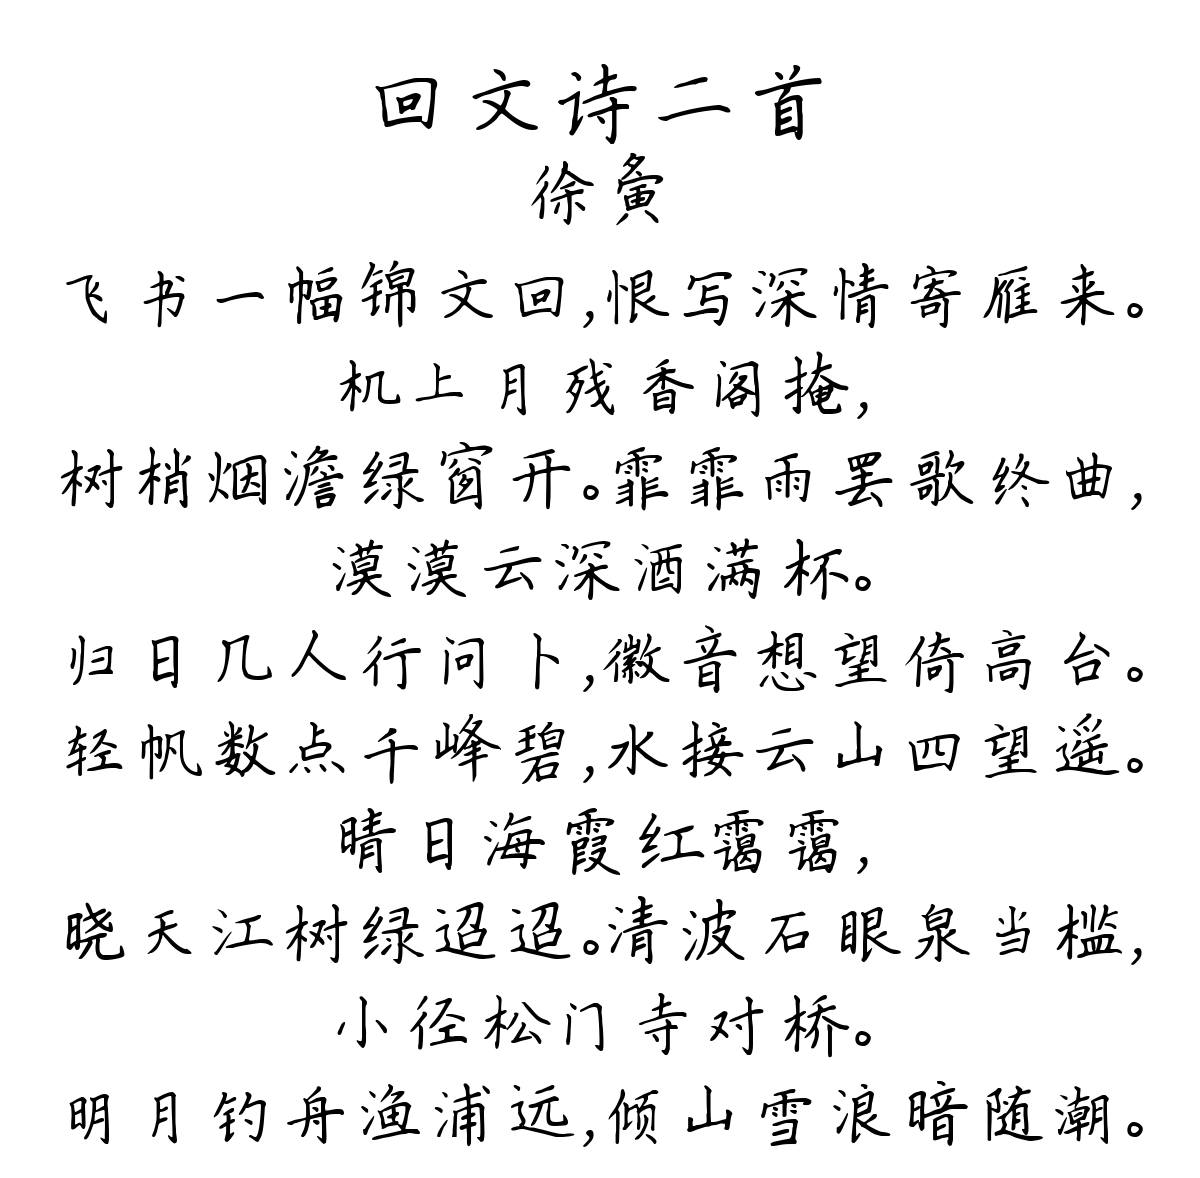 回文诗二首
徐夤
飞书一幅锦文回,恨写深情寄雁来。
机上月残香阁掩,
树梢烟澹绿窗开。霏霏雨罢歌终曲,
漠漠云深酒满杯。
归日几人行问卜,徽音想望倚高台。
轻帆数点千峰碧,水接云山四望遥。
晴日海霞红霭霭,
晓天江树绿迢迢。清波石眼泉当槛,
小径松门寺对桥。
明月钓舟渔浦远,倾山雪浪暗随潮。